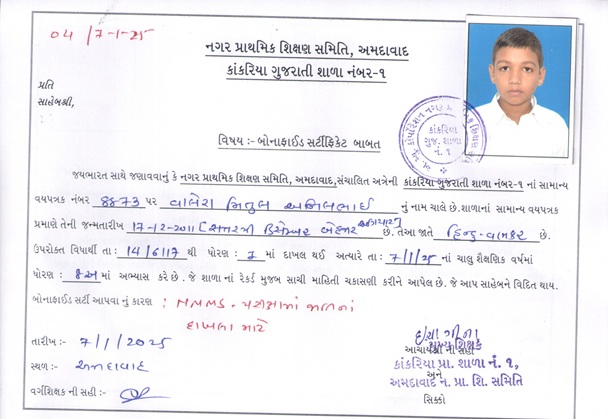 04/7-1-25
નગર પ્રાથમિક શિક્ષણ સમિતિ, અમદાવાદ
કાંકરિયા ગુજરાતી શાળા નંબર-૧
પ્રતિ
સાહેબશ્રી,
કાંકરિયા
ગુજ. શાળા
નં. ૧
વિષય :- બોનાફાઈડ સર્ટીફિકેટ બાબત
જયભારત સાથે જણાવવાનું કે નગર પ્રાથમિક શિક્ષણ સમિતિ, અમદાવાદ,સંચાલિત અત્રેની કાંકરિયા ગુજરાતી શાળા નંબર-૧ નાં સામાન્ય
વયપત્રક નંબર 8873 પર વાલેરા મિતુલ અનિલભાઈ નું નામ ચાલે છે.શાળાનાં સામાન્ય વયપત્રક
પ્રમાણે તેની જન્મતારીખ 17-12-2011 [સત્તરમી ડિસેમ્બર બેહજાર અગિયાર] છે. તેઆ જાતે હિન્દુ-વણકર છે.
ઉપરોક્ત વિધાર્થી તા : 14/6/17 થી ધોરણ : 1 માં દાખલ થઈ અત્યારે તા : 7/1/25 નાં ચાલુ શૈક્ષણિક વર્ષમાં
ધોરણ : 8અ માં અભ્યાસ કરે છે . જે શાળા નાં રેકર્ડ મુજબ સાચી માહિતી ચકાસણી કરીને આપેલ છે. જે આપ સાહેબને વિદિત થાય.
બોનાફાઈડ સર્ટી આપવા નું કારણ : NMMS - પરીક્ષામાં જાતિનાં
દાખલા માટે
તારીખ :- 7/1/2025
સ્થળ :- અમદાવાદ
વર્ગશિક્ષક ની સહી :-
મુખ્ય શિક્ષક
આચાર્યશ્રી ની સહી
કાંકરિયા પ્રા. શાળા નં. ૧,
અને
અમદાવાદ ન. પ્રા. શિ. સમિતિ
સિક્કો